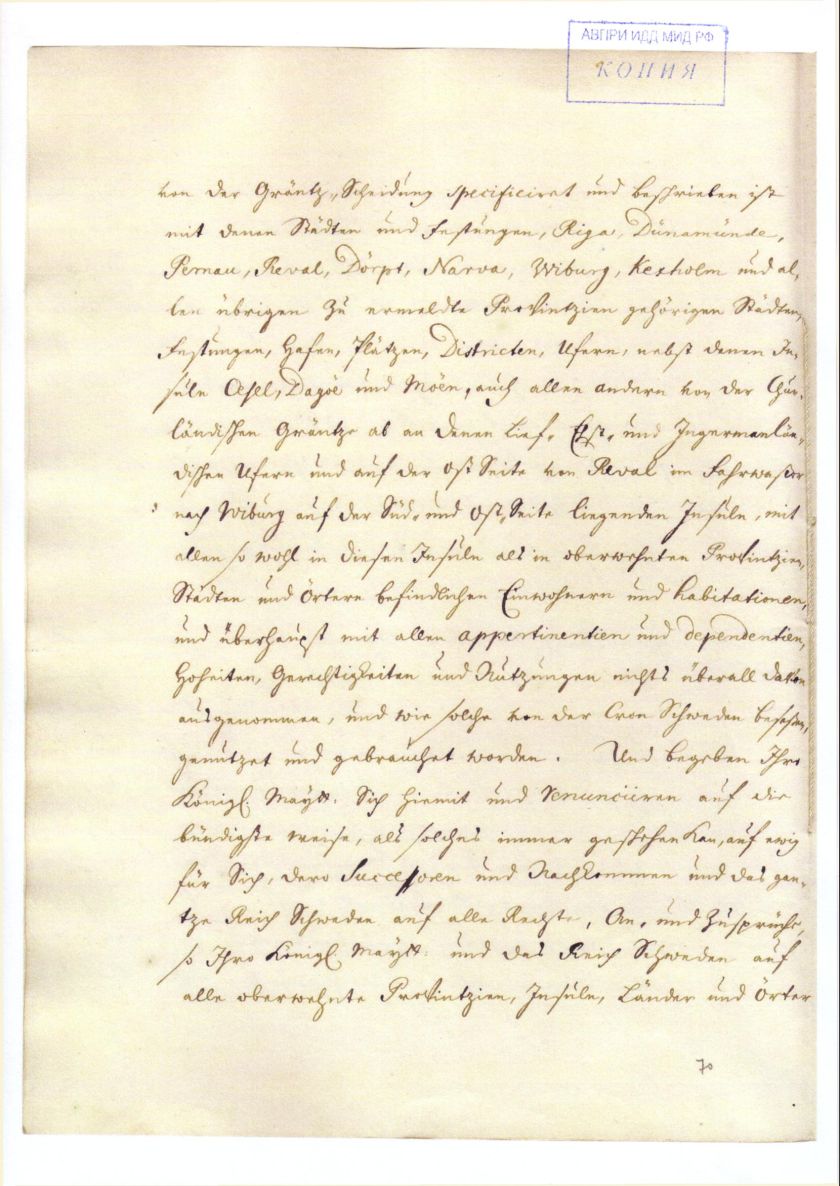 АВПРИ ИДД МИД РФ
КОПИЯ
von der Gräntz-Scheidung specificiret und beschrieben ist
mit denen Städten und Festungen, Riga, Dünamünde,
Pernau, Reval, Dörpt, Narva, Wiburg, Kexholm und al-
len übrigen zu ermeldte Provintzien gehörigen Städten,
Festungen, Hafen, Plätzen, Districten, Ufern, nebst denen In-
suln Oesel, Dagöe und Möen, auch allen andern von der Chur-
ländischen Gräntze ab an denen Lief- Ehst- und Ingermanlän-
dischen Ufern und auf der Ost Seite von Reval im Fahrwaßer
nach Wiburg auf der Süd- und Ost-Seite liegenden Insuln, mit
allen so wohl in diesen Insuln als in oberwehnten Provintzien,
Städten und Örtern befindlichen Einwohnern und habitationen,
und überhaupt mit allen appertinentien und dependentien,
Hoheiten, Gerechtigkeiten und Nutzungen nichts überall davon
ausgenommen, und wie solche von der Cron Schweden beseßen,
genutzet und gebrauchet worden. Und begeben Ihro
Königl. Maytt. Sich hiemit und renunciiren auf die
bündigste weise, als solches immer geschehen kan, auf ewig
für Sich, dero Successoren und Nachkommen und das gan-
tze Reich Schweden auf alle Rechte, An- und Zusprüche,
so Ihro Königl. Maytt. und das Reich Schweden auf
alle oberwehnte Provintzien, Insuln, Länder und Örter
70